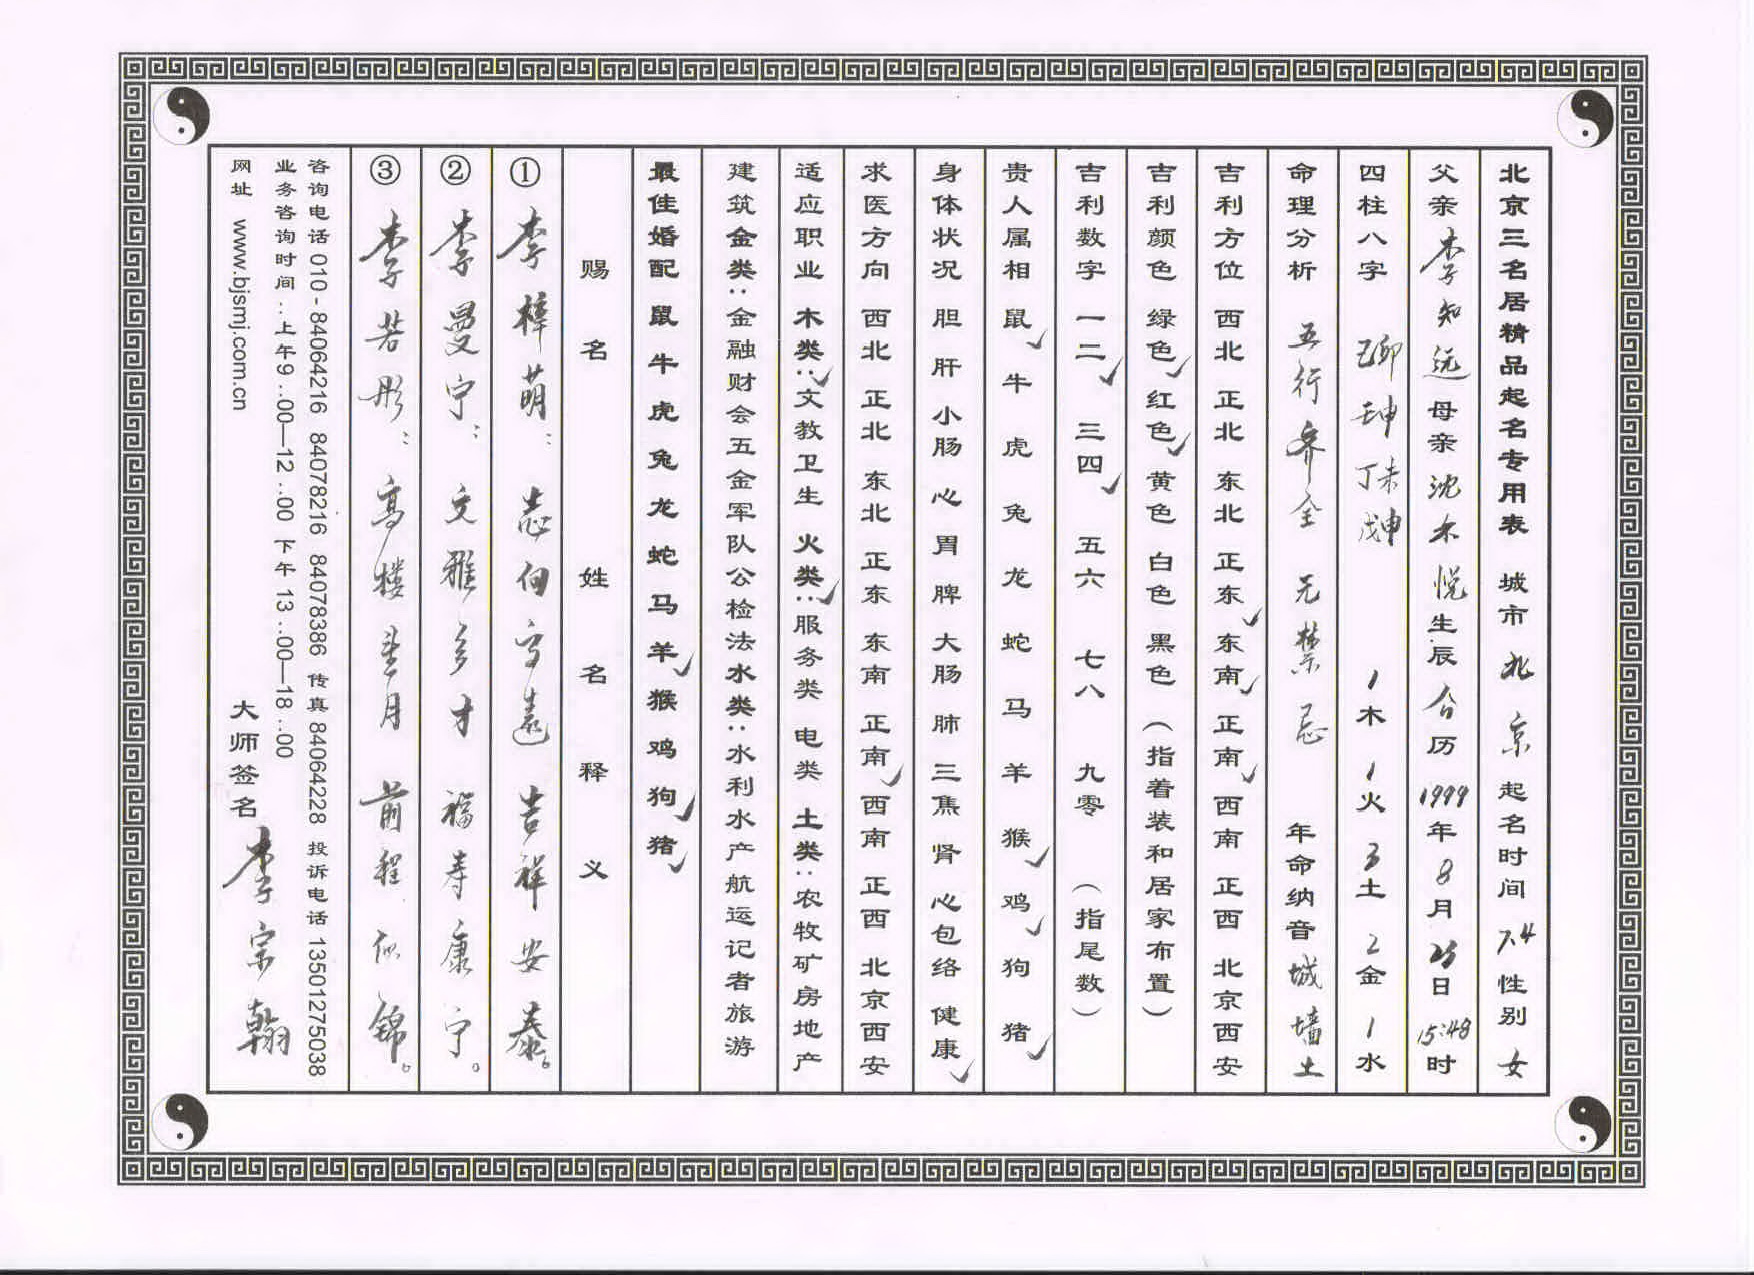 北京三名居精品起名专用表 城市 北京 起名时间 7.4 性别 女
父亲 李知远 母亲 沈木悦 生辰 合历 1999年8月25日 15:48时
四柱八字 己卯 壬申 丁未 戊申 1木 1火 3土 2金 1水
命理分析 五行齐全 无禁忌 年命纳音 城墙土
吉利方位 西北 正北 东北 正东✓ 东南✓ 正南✓ 西南 正西 北京西安
吉利颜色 绿色✓ 红色✓ 黄色 白色 黑色 (指着装和居家布置)
吉利数字 一二✓ 三四✓ 五六 七八 九零 (指尾数)
贵人属相 鼠✓ 牛 虎 兔 龙 蛇 马 羊 猴✓ 鸡✓ 狗 猪✓
身体状况 胆 肝 小肠 心 胃 脾 大肠 肺 三焦 肾 心包络 健康✓
求医方向 西北 正北 东北 正东 东南 正南✓ 西南 正西 北京西安
适应职业 木类:✓文教卫生 火类:✓服务类 电类 土类:农牧矿房地产
建筑金类:金融财会五金军队公检法水类:水利水产航运记者旅游
最佳婚配 鼠 牛 虎 兔 龙 蛇 马 羊✓ 猴 鸡 狗✓ 猪✓
赐名 姓名释义
① 李梓萌: 志向高远 吉祥安泰。
② 李曼宁: 文雅多才 福寿康宁。
③ 李若彤: 高楼望月 前程似锦。
咨询电话 010-84064216 84078216 84078386 传真 84064228 投诉电话 13501275038
业务咨询时间:上午9:00—12:00 下午13:00—18:00
网址 www.bjsmj.com.cn 大师签名 李宗翰